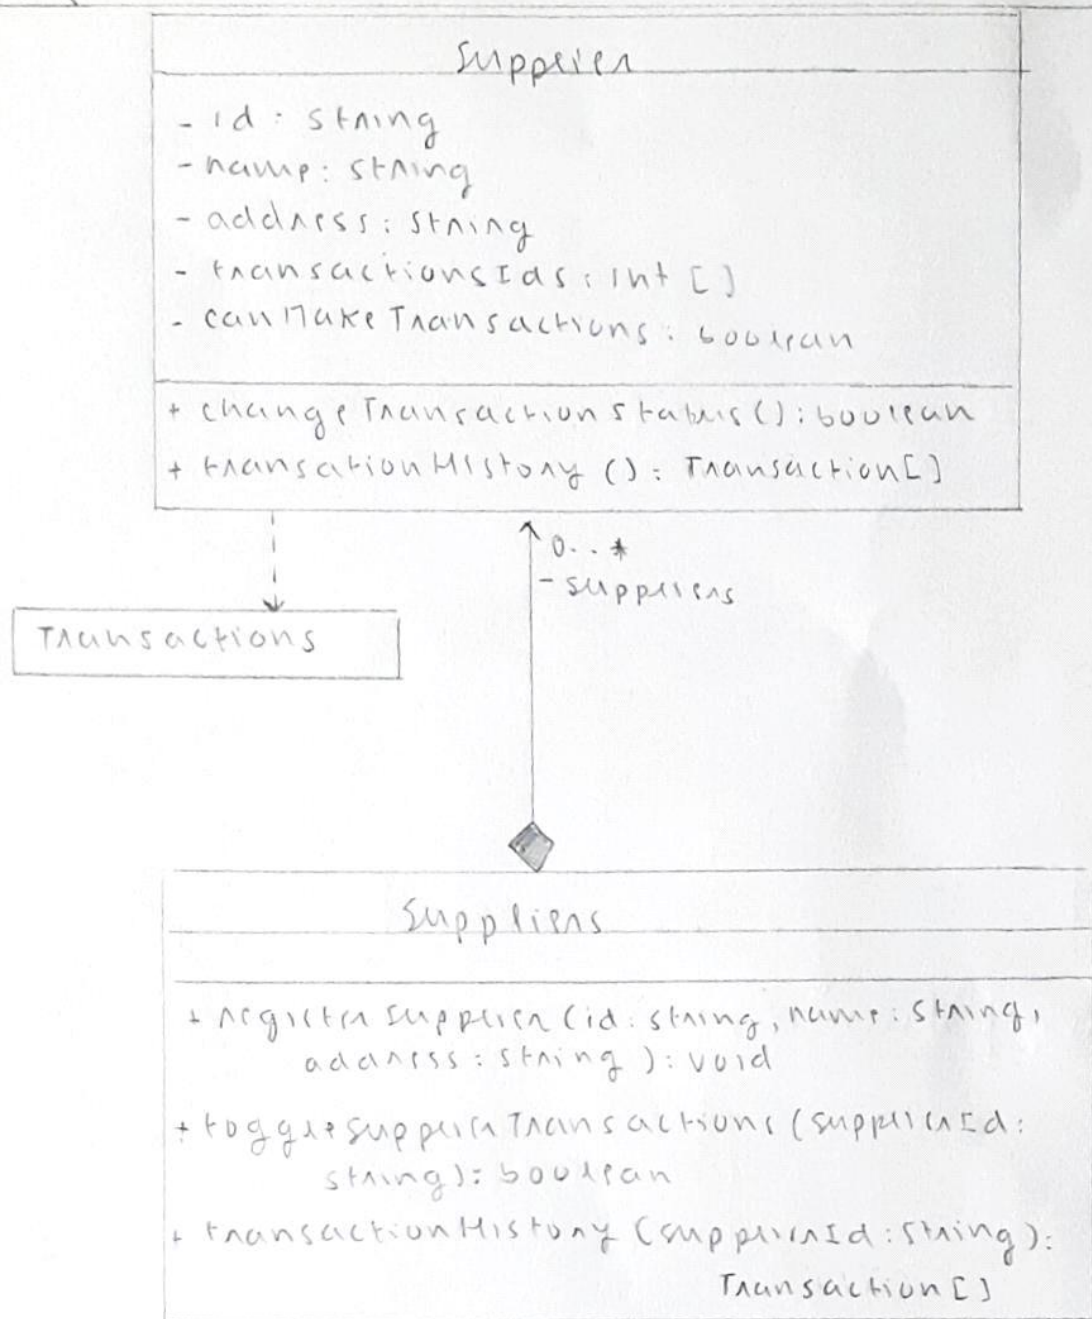 Supplier
- id : string
- name : string
- address : string
- transactionsIds : int []
- canMakeTransactions : boolean
+ changeTransactionStatus() : boolean
+ transationHistory () : Transaction[]
0..*
- suppliers
Transactions
Suppliers
+ registerSupplier (id : string, name : string,
address : string ) : void
+ toggleSupplierTransactions (supplierId :
string) : boolean
+ transactionHistory (supplierId : string) :
Transaction[]